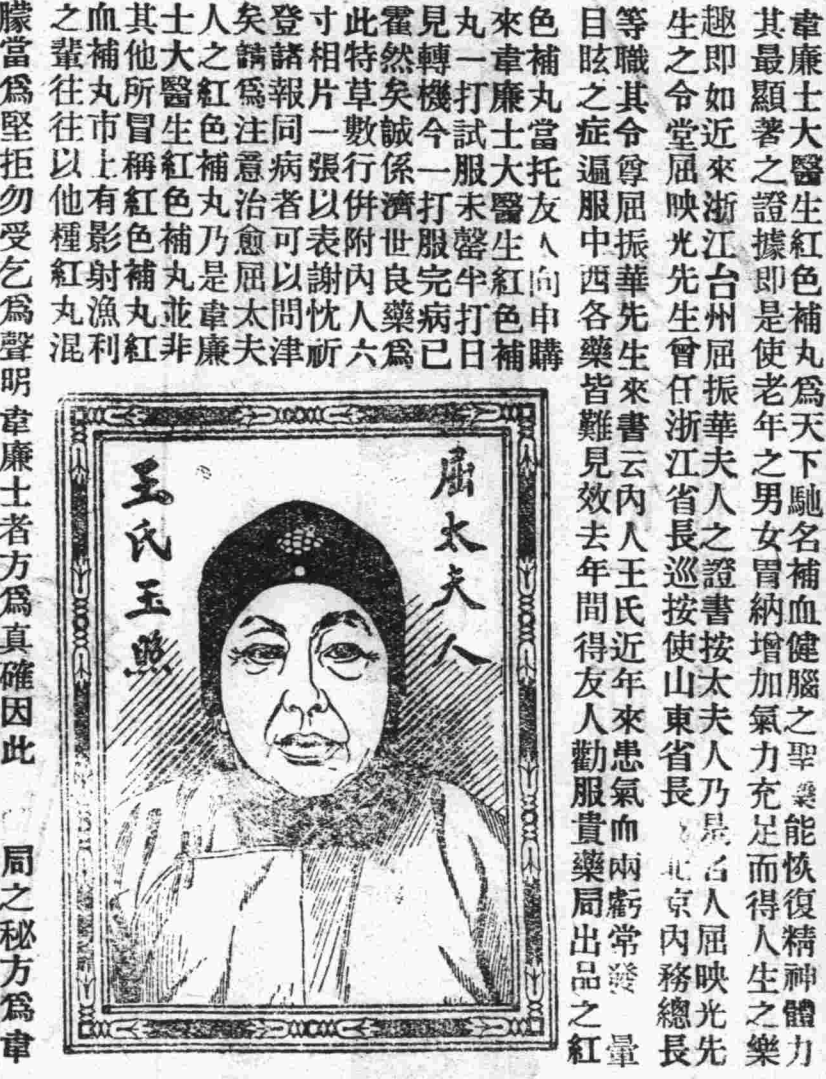 韋廉士大醫生紅色補丸爲天下馳名補血健腦之聖藥能恢復精神體力
其最顯著之證據即是使老年之男女胃納增加氣力充足而得人生之樂
趣即如近來浙江台州屈振華夫人之證書按太夫人乃是名人屈映光先
生之令堂屈映光先生曾任浙江省長巡按使山東省長北京內務總長
等職其令尊屈振華先生來書云內人王氏近年來患氣血兩虧常發暈
目眩之症遍服中西各藥皆難見效去年間得友人勸服貴藥局出品之紅
色補丸當托友人向申購
來韋廉士大醫生紅色補
丸一打試服未罄半打日
見轉機今一打服完病已
霍然矣誠係濟世良藥爲
此特草數行併附內人六
寸相片一張以表謝忱祈
登諸報同病者可以問津
矣請爲注意治愈屈太夫
人之紅色補丸乃是韋廉
士大醫生紅色補丸並非
其他所冒稱紅色補丸紅
血補丸市上有影射漁利
之輩往往以他種紅丸混
朦當爲堅拒勿受乞爲聲明韋廉士者方爲真確因此局之秘方爲韋
屈太夫人
王氏玉照